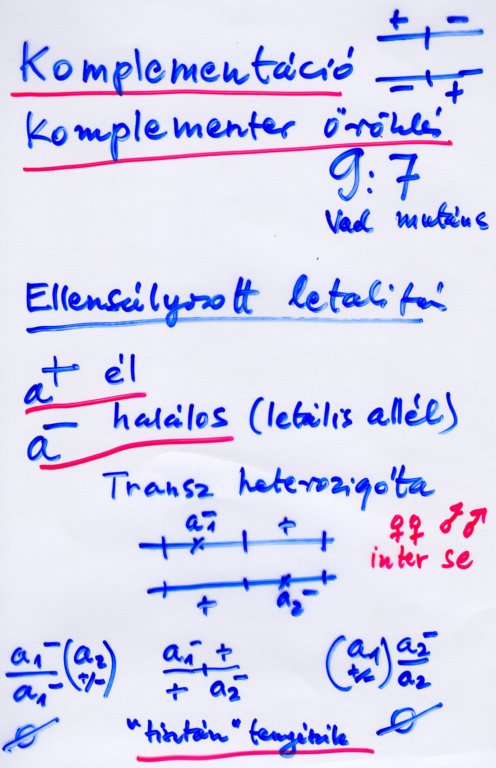 + -
Komplementáció
- +
Komplementer öröklés
9:7
Vad mutáns
Ellensúlyozott letalitás
a+ él
a- halálos (letális allél)
Transz heterozigóta
a1- +
♀♀ ♂♂
inter se
+ a2-
a1- (a2 a1- + (a1) a2-
a1- +/-) + a2- +/- a2
"tisztán" tenyészik